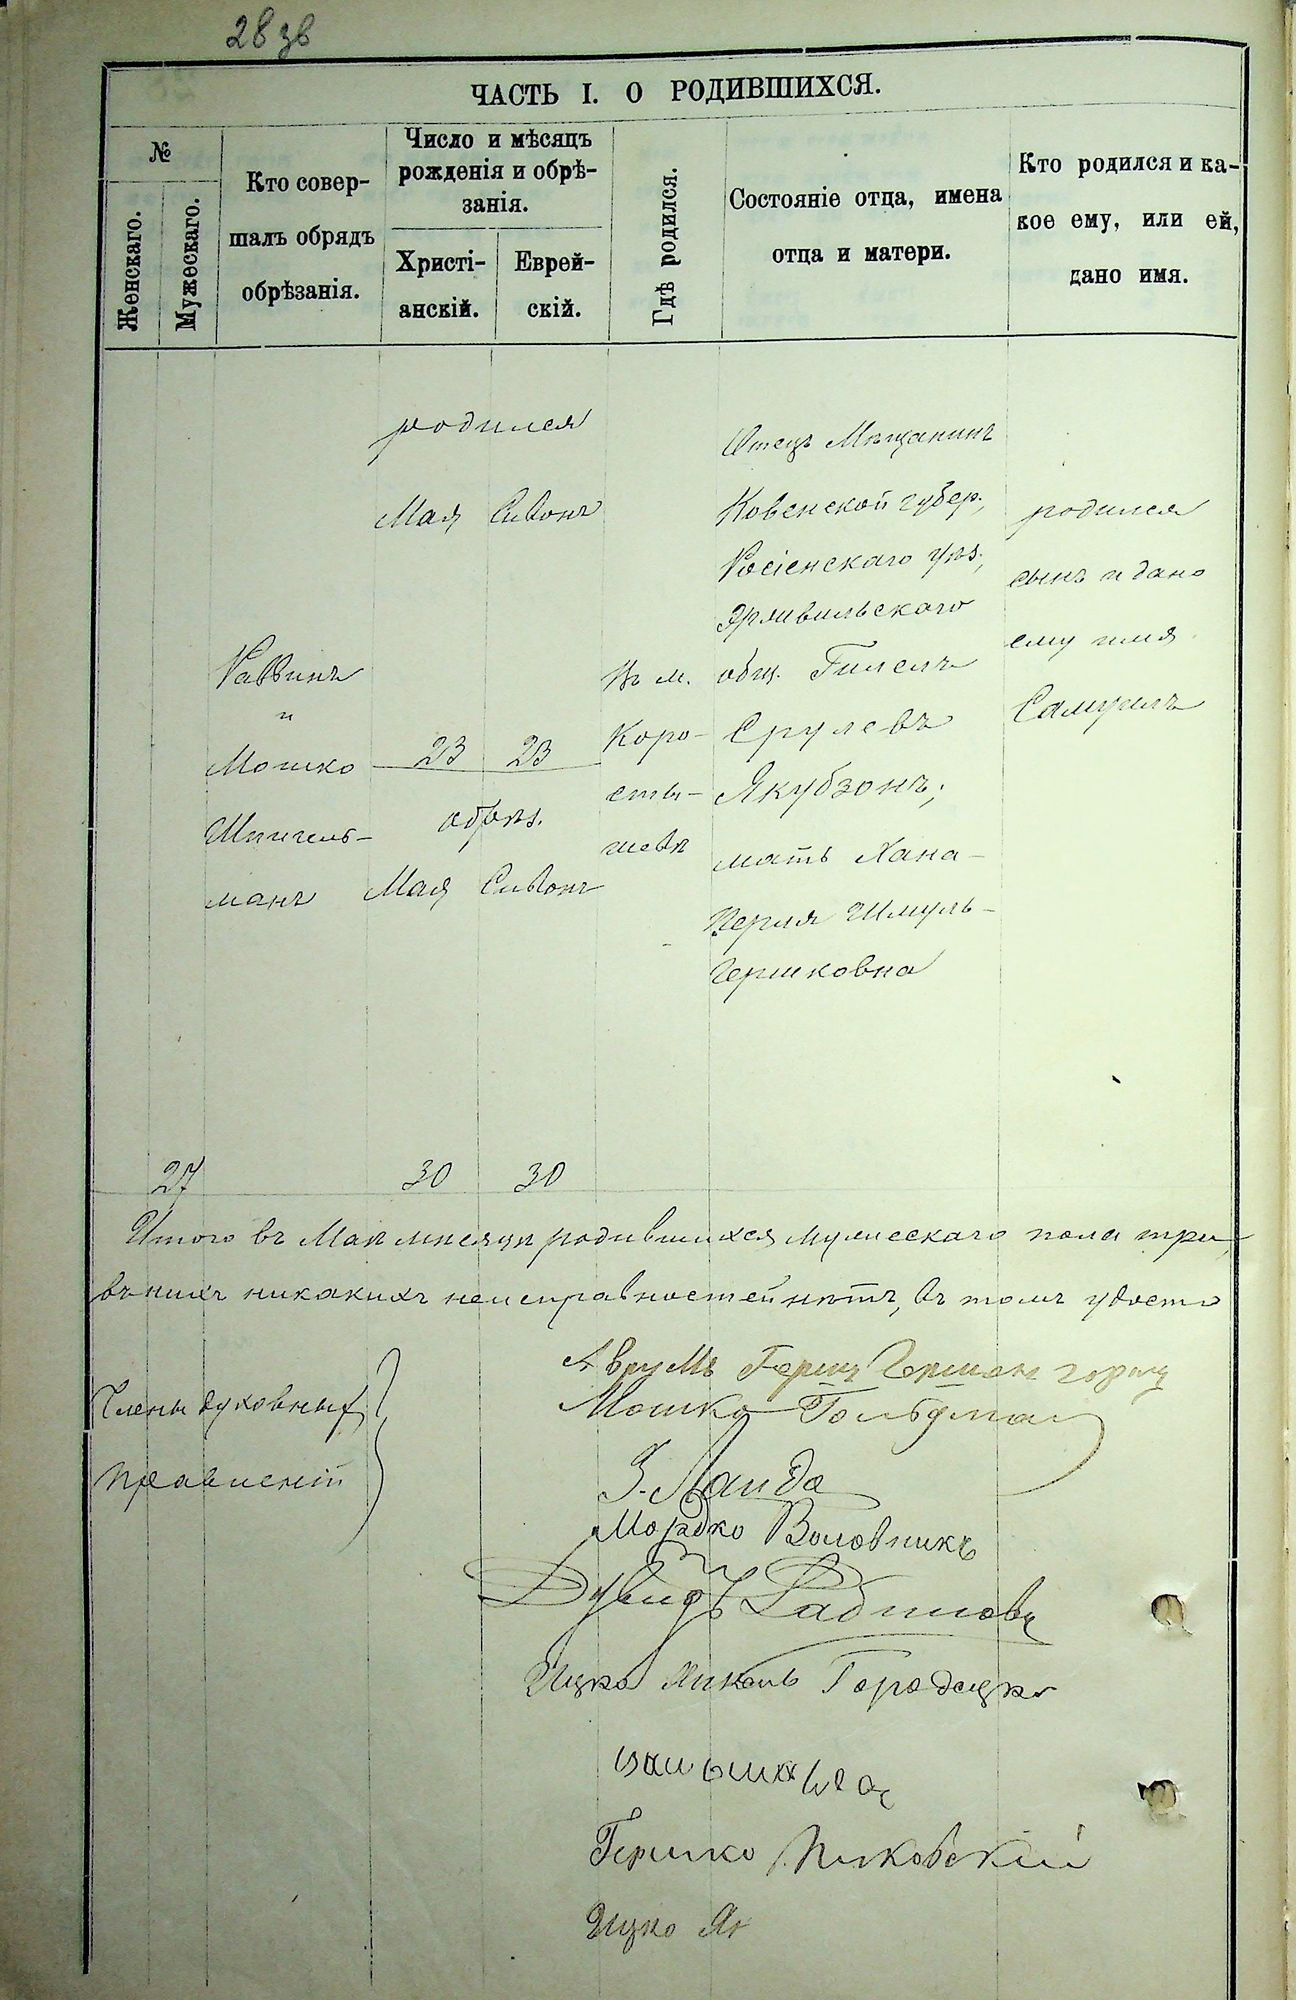 28 зв
ЧАСТЬ I. О РОДИВШИХСЯ.
№
Женскаго.
Мужескаго.
Кто совер-
шалъ обрядъ
обрѣзанія.
Число и мѣсяцъ
рожденія и обрѣ-
занія.
Христі-
анскій.
Еврей-
скій.
Гдѣ родился.
Состояніе отца, имена
отца и матери.
Кто родился и ка-
кое ему, или ей,
дано имя.
27
Раввинъ
и
Мошко
Шпигель-
манъ
родился
Мая Сивонъ
23 23
обрѣз.
Мая Сивонъ
30 30
Въ м.
Коро-
сты-
шевѣ
Отецъ Мѣщанинъ
Ковенской губер.,
Росіенскаго уѣз.,
общ. Гилелъ
Срулевъ
Якубзонъ;
мать Хана-
Перля Шмуль-
Гершковна
родился
сынъ и дано
ему имя
Самуилъ
Итого въ Маѣ мѣсяцѣ родившихся мужескаго пола три,
въ нихъ никакихъ неисправностей нѣтъ, въ томъ удосто
Члены духовных
правленій
Аврумъ Герш
Мошко Гольдман
З. Ланда
Мордко Воловникъ
Дувидъ Рабинов
Ицко Янкель Городецк
Гершко Пиковскій
Ицко Як